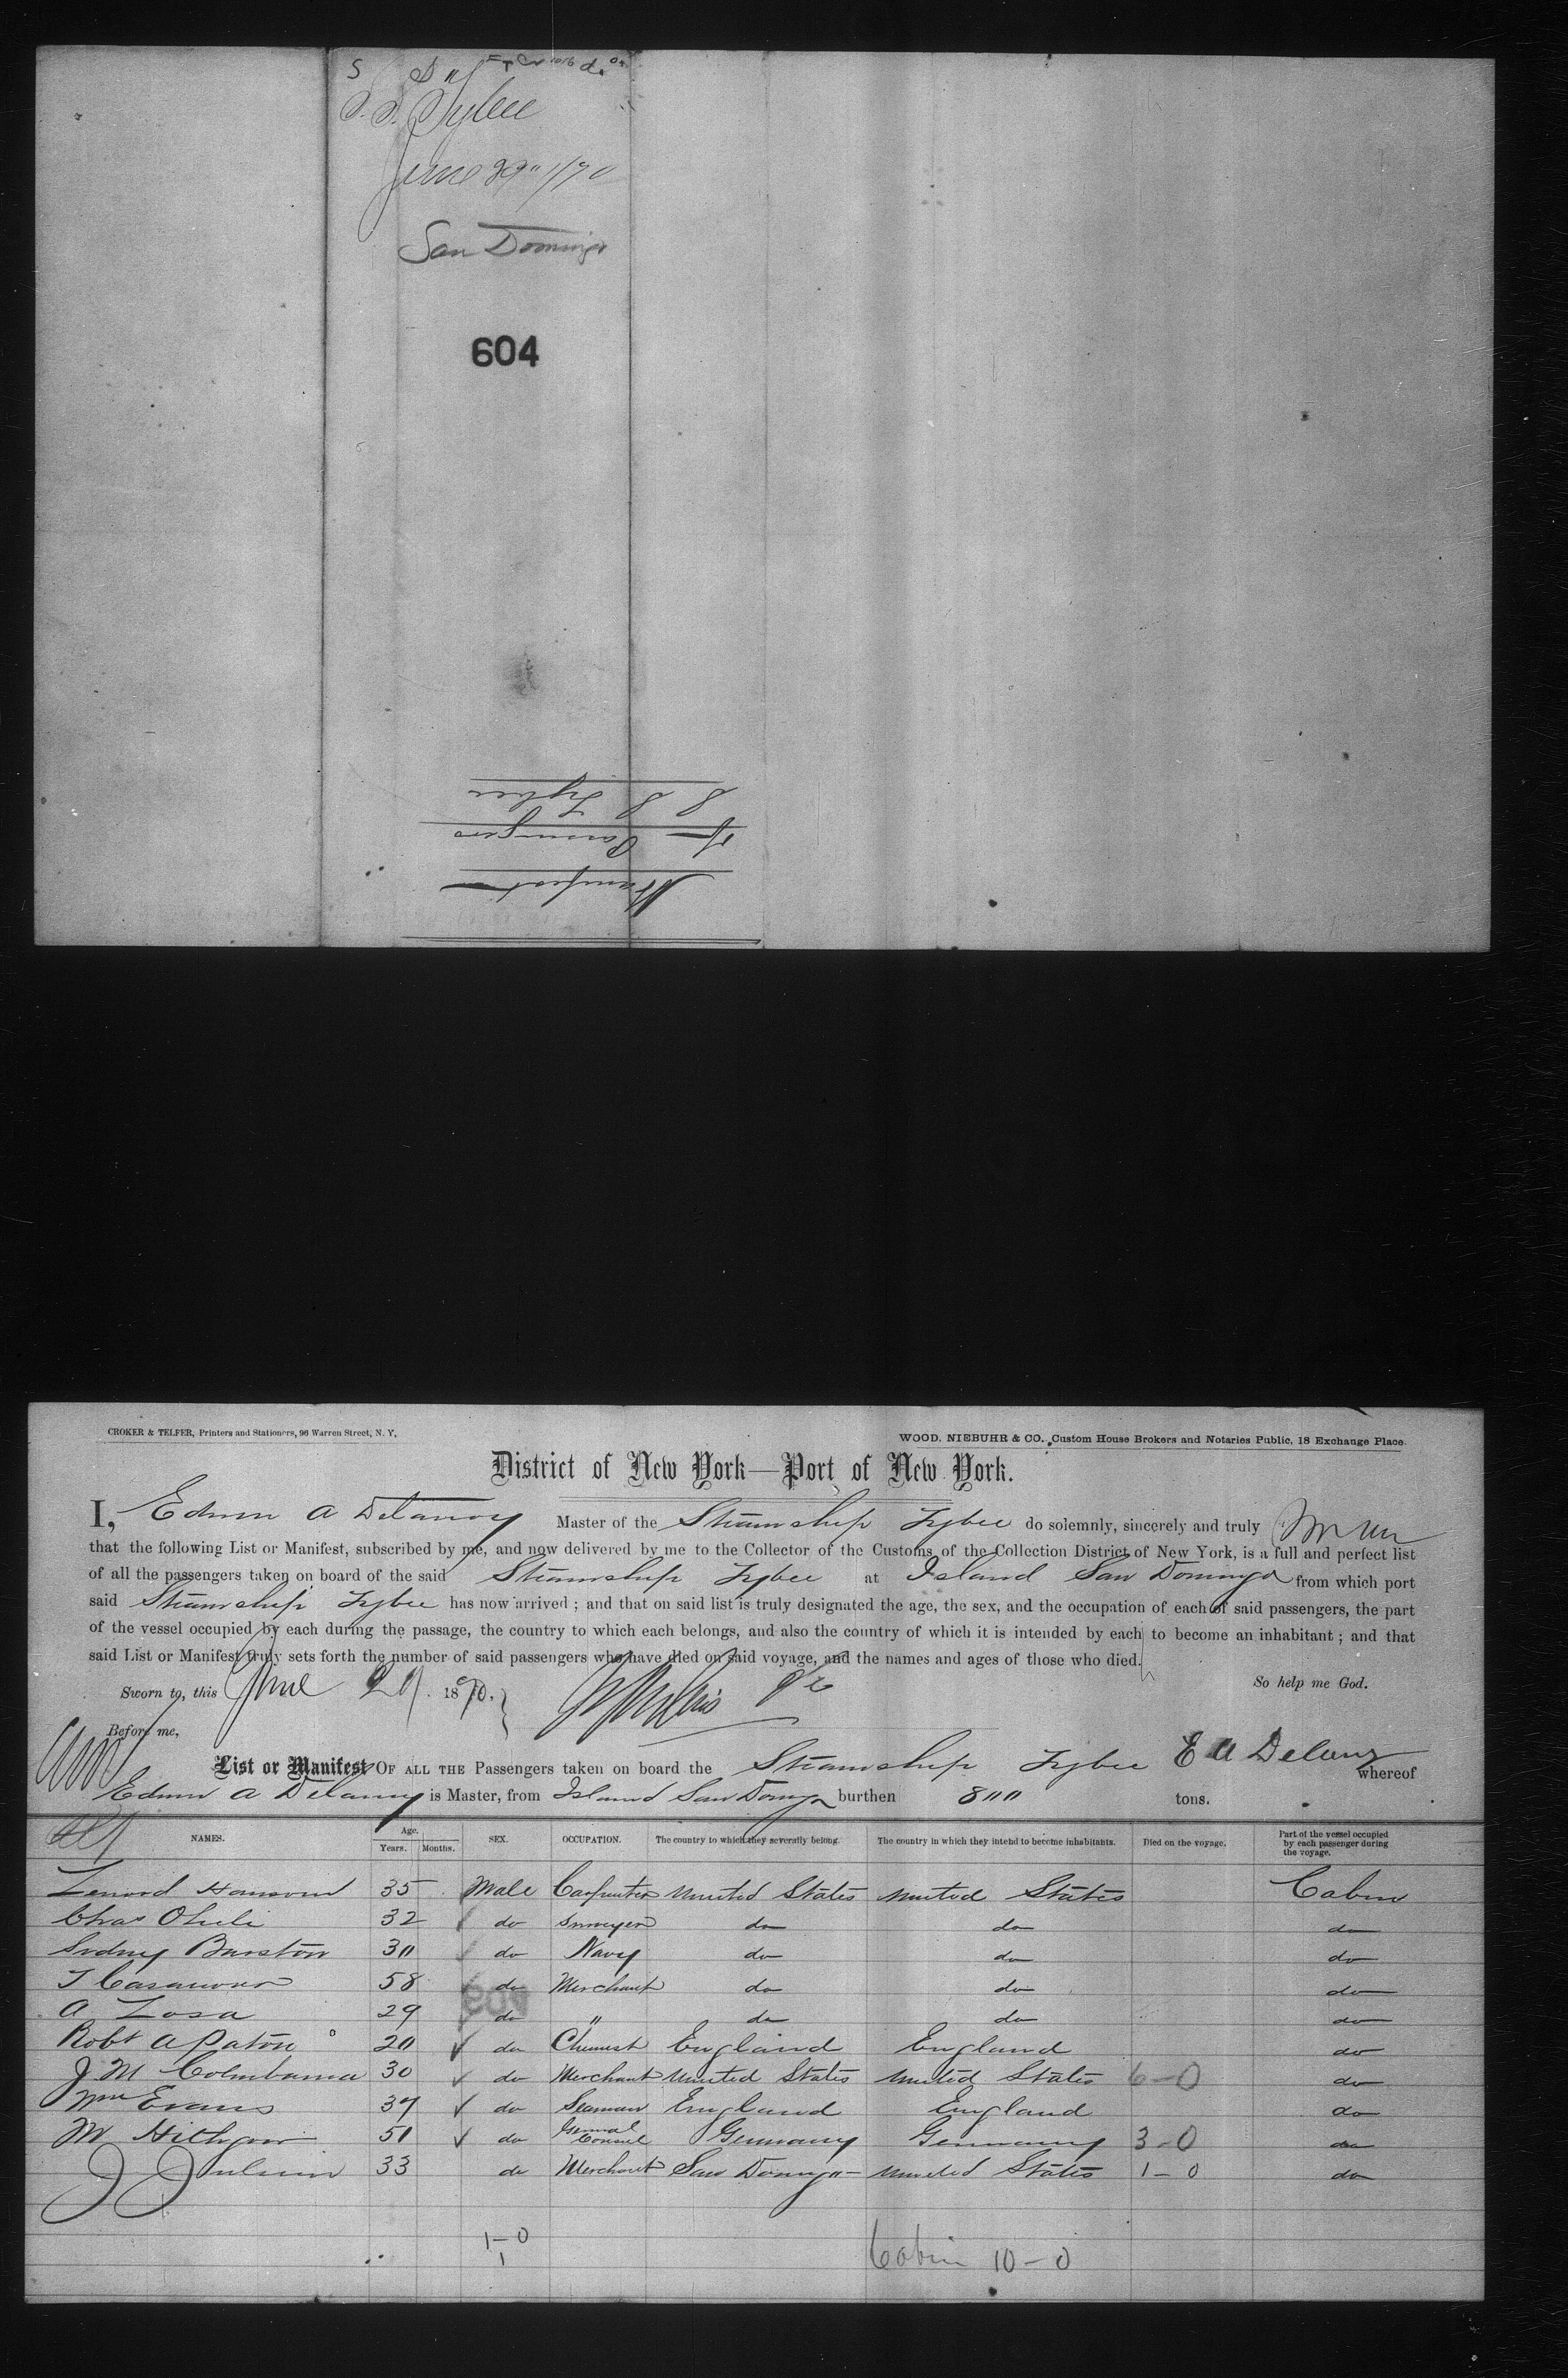 S.S. Tybee
June 29" 1/70
San Domingo
604
Manifest
of Passengers
S S Tybee
CROKER & TELFER, Printers and Stationers, 96 Warren Street, N. Y.
WOOD, NIEBUHR & CO., Custom House Brokers and Notaries Public, 18 Exchange Place.
District of New York—Port of New York.
I, Edwin A Delanoy Master of the Steamship Tybee do solemnly, sincerely and truly
that the following List or Manifest, subscribed by me, and now delivered by me to the Collector of the Customs of the Collection District of New York, is a full and perfect list
of all the passengers taken on board of the said Steamship Tybee at Island San Domingo from which port
said Steamship Tybee has now arrived; and that on said list is truly designated the age, the sex, and the occupation of each of said passengers, the part
of the vessel occupied by each during the passage, the country to which each belongs, and also the country of which it is intended by each to become an inhabitant; and that
said List or Manifest truly sets forth the number of said passengers who have died on said voyage, and the names and ages of those who died.
Sworn to, this June 29 1870. So help me God.
Before me,
List or Manifest OF ALL THE Passengers taken on board the Steamship Tybee E A Delanoy whereof
Edwin A Delanoy is Master, from Island San Domingo burthen 800 tons.
NAMES. Age. Years. Months. SEX. OCCUPATION. The country to which they severally belong. The country in which they intend to become inhabitants. Died on the voyage. Part of the vessel occupied by each passenger during the voyage.
35 Male Carpenter United States United States Cabin
Chas 32 do Surveyor do do do
Sydney Barstow 30 do Navy do do do
58 do Merchant do do do
A 29 do " do do do
Robt A Paton 20 do Chemist England England do
J M 30 do Merchant United States United States 6-0 do
Wm Evans 37 do Seaman England England do
M 51 do General Consul Germany Germany 3-0 do
J 33 do Merchant San Domingo United States 1-0 do
1-0
1
Cabin 10-0